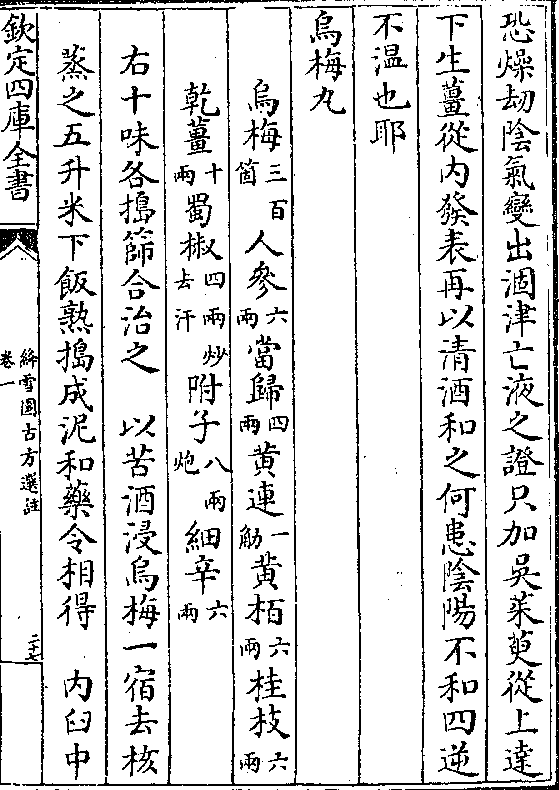 恐燥劫陰氣變出涸津亡液之證只加吳茱萸從上達
下生薑從内發表再以清酒和之何患陰陽不和四逆
不温也耶
烏梅丸
烏梅三百箇人參六兩當歸四兩黄連一觔黄栢六兩桂枝六兩
乾薑十兩蜀椒四兩炒去汗附子八兩炮細辛六兩
右十味各搗篩合治之 以苦酒浸烏梅一宿去核
蒸之五升米下飯熟搗成泥和藥令相得 内臼中
欽定四庫全書
絳雪園古方選註
卷一
二十七